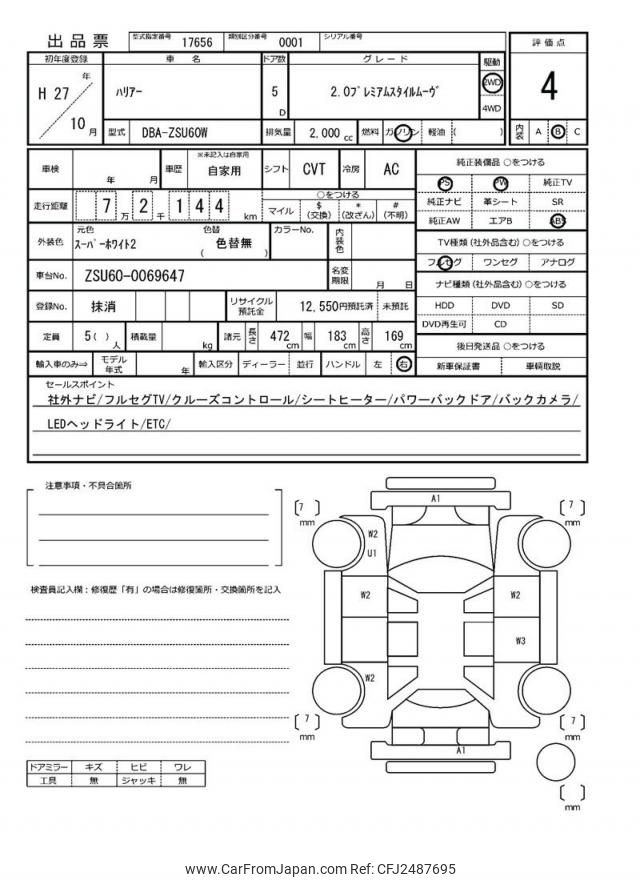 出品票 型式指定番号 17656 類別区分番号 0001 シリアル番号
初年度登録 車名 ドア数 グレード 駆動 評価点
H 27 年 10 月 ﾊﾘｱｰ 5 D 2.0ﾌﾟﾚﾐｱﾑｽﾀｲﾙﾑｰｳﾞ 2WD 4WD 4
型式 DBA-ZSU60W 排気量 2,000 cc 燃料 ガソリン 軽油 ( ) 内装 A B C
車検 年 月 車歴 ※未記入は自家用 自家用 シフト CVT 冷房 AC
走行距離 7 万 2 千 1 4 4 km ○をつける マイル $ (交換) * (改ざん) # (不明)
外装色 元色 ｽｰﾊﾟｰﾎﾜｲﾄ2 色替 ( 色替無 ) カラーNo. 内装色
車台No. ZSU60-0069647 名変期限 月 日
登録No. 抹消 リサイクル預託金 12,550円預託済 未預託
定員 5( ) 人 積載量 kg 諸元 長さ 472 cm 幅 183 cm 高さ 169 cm
輸入車のみ⇒ モデル年式 年 輸入区分 ディーラー 並行 ハンドル 左 右
純正装備品 ○をつける
PS PW 純正TV
純正ナビ 革シート SR
純正AW エアB ABS
TV種類 (社外品含む) ○をつける
フルセグ ワンセグ アナログ
ナビ種類 (社外品含む) ○をつける
HDD DVD SD
DVD再生可 CD
後日発送品 ○をつける
新車保証書 車輌取説
セールスポイント
社外ナビ/フルセグTV/クルーズコントロール/シートヒーター/パワーバックドア/バックカメラ/
LEDヘッドライト/ETC/
注意事項・不具合箇所
検査員記入欄：修復歴「有」の場合は修復箇所・交換箇所を記入
A1
[ 7 ] mm
[ 7 ] mm
W2
U1
W2
W2
W3
W2
[ 7 ] mm
[ 7 ] mm
A1
[ ] mm
ドアミラー キズ ヒビ ワレ
工具 無 ジャッキ 無
www.CarFromJapan.com Ref: CFJ2487695